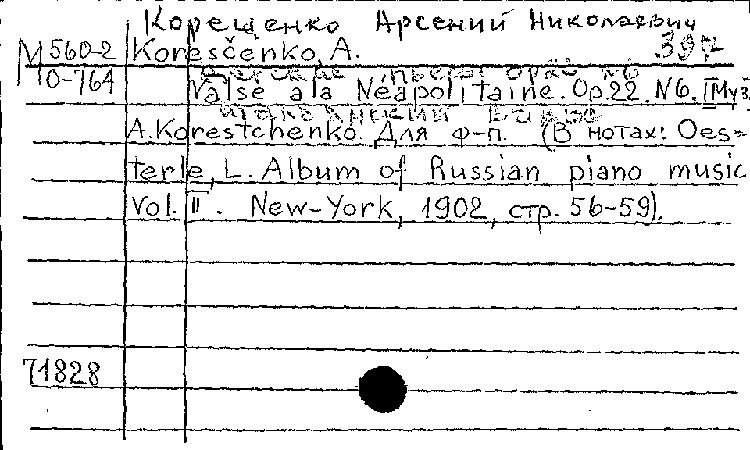 Корещенко Арсений Николаевич
М 560-2 Koresčenko, A. 397
10-764
Valse a la Neapolitaine. Op. 22. N6. [Муз.
A. Korestchenko. Для ф-п. (В нотах: Oes=
terle, L. Album of Russian piano music
Vol. II. New-York, 1902, стр. 56-59).
71828